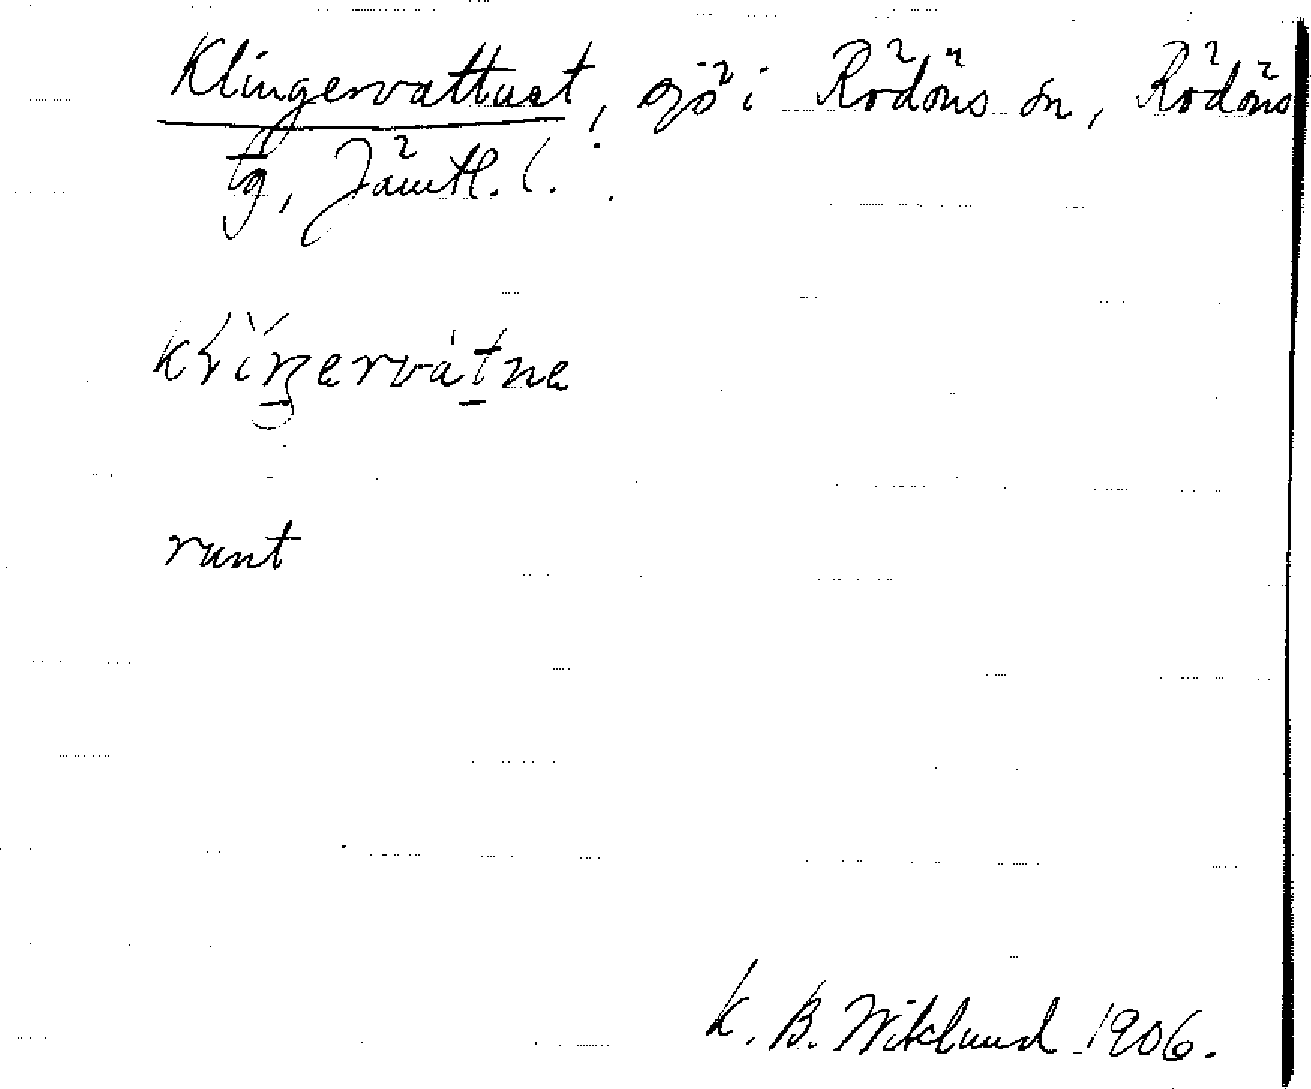 Klingervattnet, sjö i Rödöns sn, Rödöns
tg, Jämtl. l.
runt
K. B. Wiklund 1906.